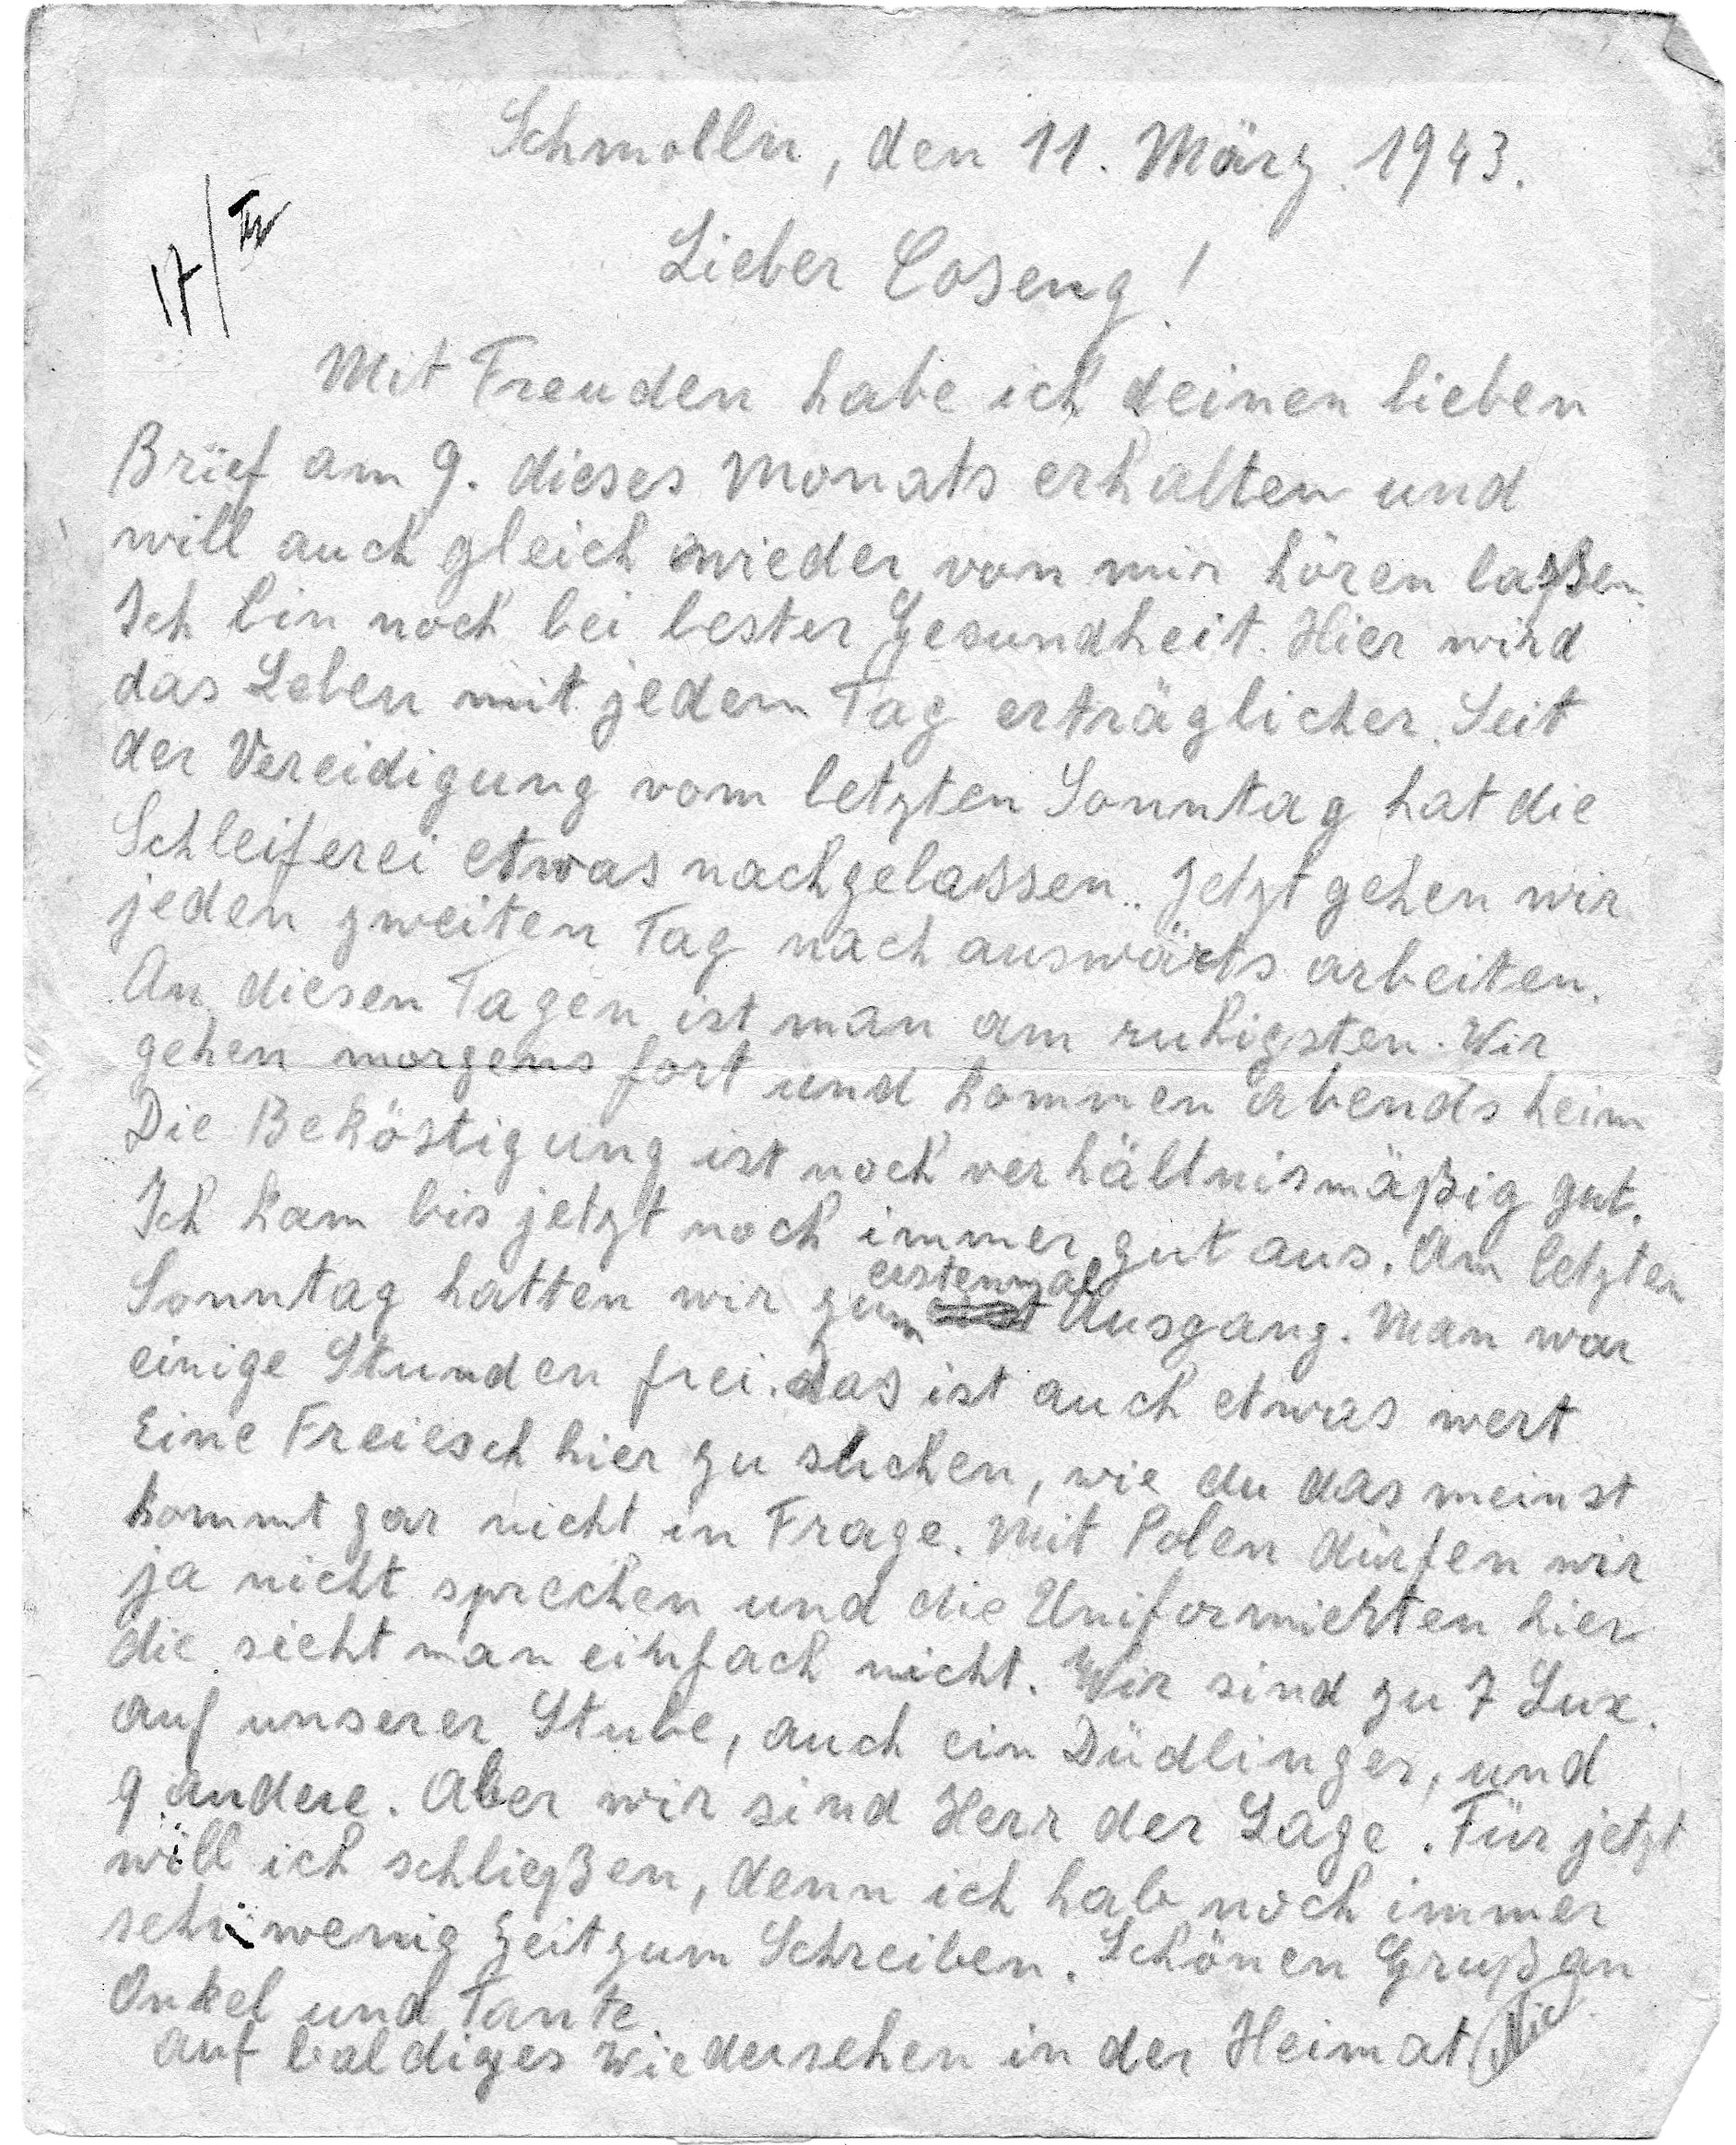 Schmolln, den 11. März. 1943.
17/III
Lieber Coseng!
Mit Freuden habe ich deinen lieben
Brief am 9. dieses Monats erhalten und
will auch gleich wieder von mir hören laßen.
Ich bin noch bei bester Gesundheit. Hier wird
das Leben mit jedem Tag erträglicher. Seit
der Vereidigung vom letzten Sonntag hat die
Schleiferei etwas nachgelassen.. Jetzt gehen wir
jeden zweiten Tag nach auswärts arbeiten.
An diesen Tagen ist man am ruhigsten. Wir
gehen morgens fort und kommen abends heim
Die Beköstigung ist noch verhältnismäßig gut.
Ich kam bis jetzt noch immer gut aus. Am letzten
Sonntag hatten wir zum erstenmal Ausgang. Man war
einige Stunden frei. das ist auch etwas wert
Eine Freiesch hier zu suchen, wie du das meinst
kommt gar nicht in Frage. Mit Polen dürfen wir
ja nicht sprechen und die Uniformierten hier
die sieht man einfach nicht. Wir sind zu 7 Lux.
auf unserer Stube, auch ein Düdlinger, und
9 andere. Aber wir sind Herr der Lage. Für jetzt
will ich schließen, denn ich hab noch immer
sehr wenig Zeit zum Schreiben. Schönen Gruß an
Onkel und Tante.
Auf baldiges Wiedersehen in der Heimat